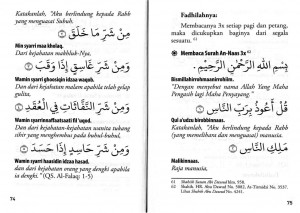 Katakanlah, "Aku berlindung kepada Rabb
yang menguasai Subuh.
مِنْ شَرِّ مَا خَلَقَ
Min syarri maa kholaq.
Dari kejahatan makhluk-Nya,
وَمِنْ شَرِّ غَاسِقٍ إِذَا وَقَبَ
Wamin syarri ghoosiqin idzaa waqob.
Dan dari kejahatan malam apabila telah
gelap gulita,
وَمِنْ شَرِّ النَّفَّاثَاتِ فِي الْعُقَدِ
Wamin syarrinnaffaatsaati fil 'uqod.
dan dari kejahatan wanita-wanita
tukang sihir yang menghembus pada
buhul-buhul,
وَمِنْ شَرِّ حَاسِدٍ إِذَا حَسَدَ
Wamin syarri haasidin idzaa hasad.
dan dari kejahatan orang yang dengki
apabila ia dengki." (QS. Al-Falaq: 1-5)
74
Fadhilahnya:
membacanya 3x setiap pagi dan petang,
maka dicukupkan baginya dari segala
sesuatu. 61
Membaca Surah An-Naas 3x
بِسْمِ اللَّهِ الرَّحْمَنِ الرَّحِيمِ
Bismillahirrahmaanirrohiim.
"Dengan menyebut nama Allah Yang Maha
Pengasih lagi Maha Penyayang."
قُلْ أَعُوذُ بِرَبِّ النَّاسِ
Qul a'udzu birobbinnaas.
Katakanlah, "Aku berlindung kepada Rabb
manusia.
مَلِكِ النَّاسِ
Malikinnaas.
Raja manusia,
75